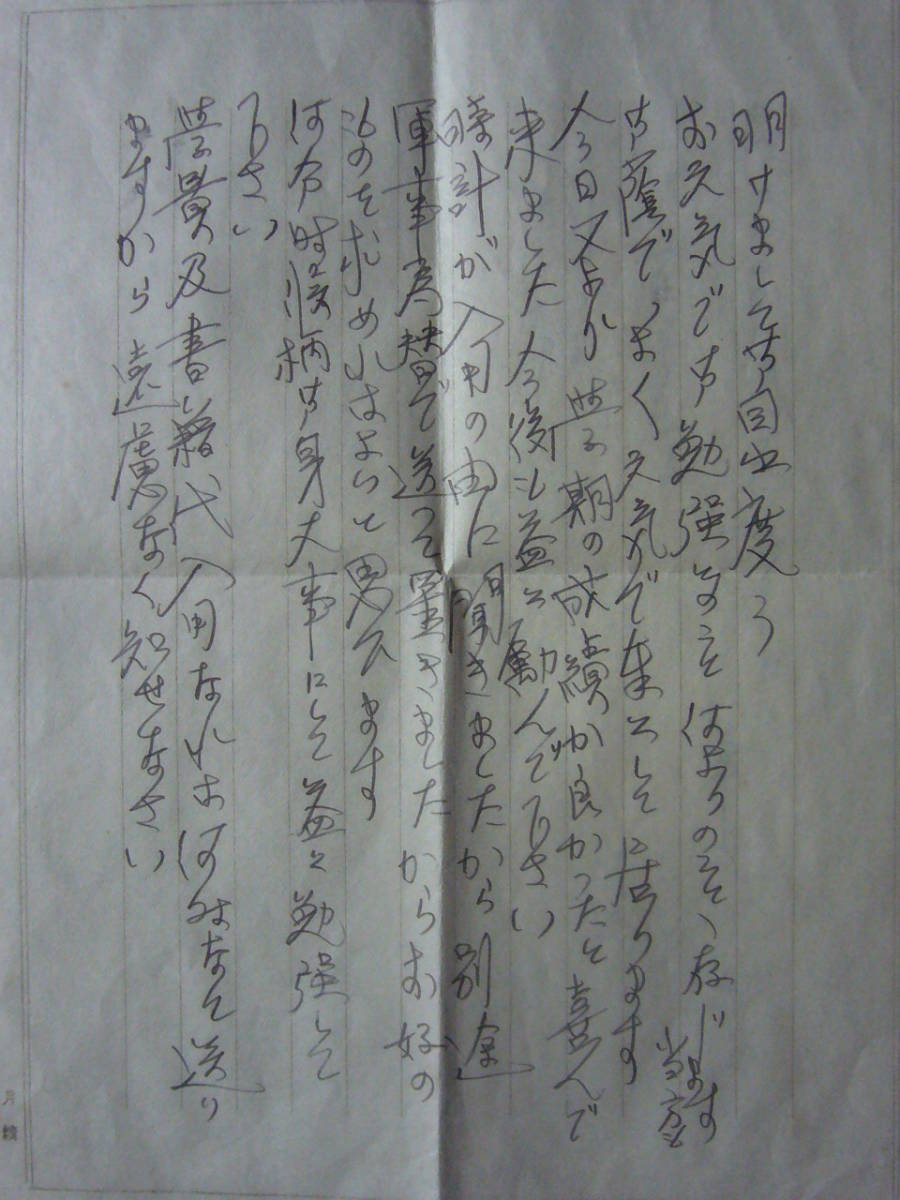 明けましてお目出度う
お元気でお勉強なのこと何よりのことゝ存じます
当方も
お蔭でつまく元気で暮して居ります
今日又より学期の成績が良かったと喜んで
来ました今後も益々励んで下さい
時計が入用の由に聞きましたから別途
軍事為替で送って置きましたからお好の
ものを求めればよいと思ひます
何分時候柄お身大事にして益々勉強して
下さい
学費及書籍代入用なれば何時なりと送り
ますから遠慮なく知せなさい
月